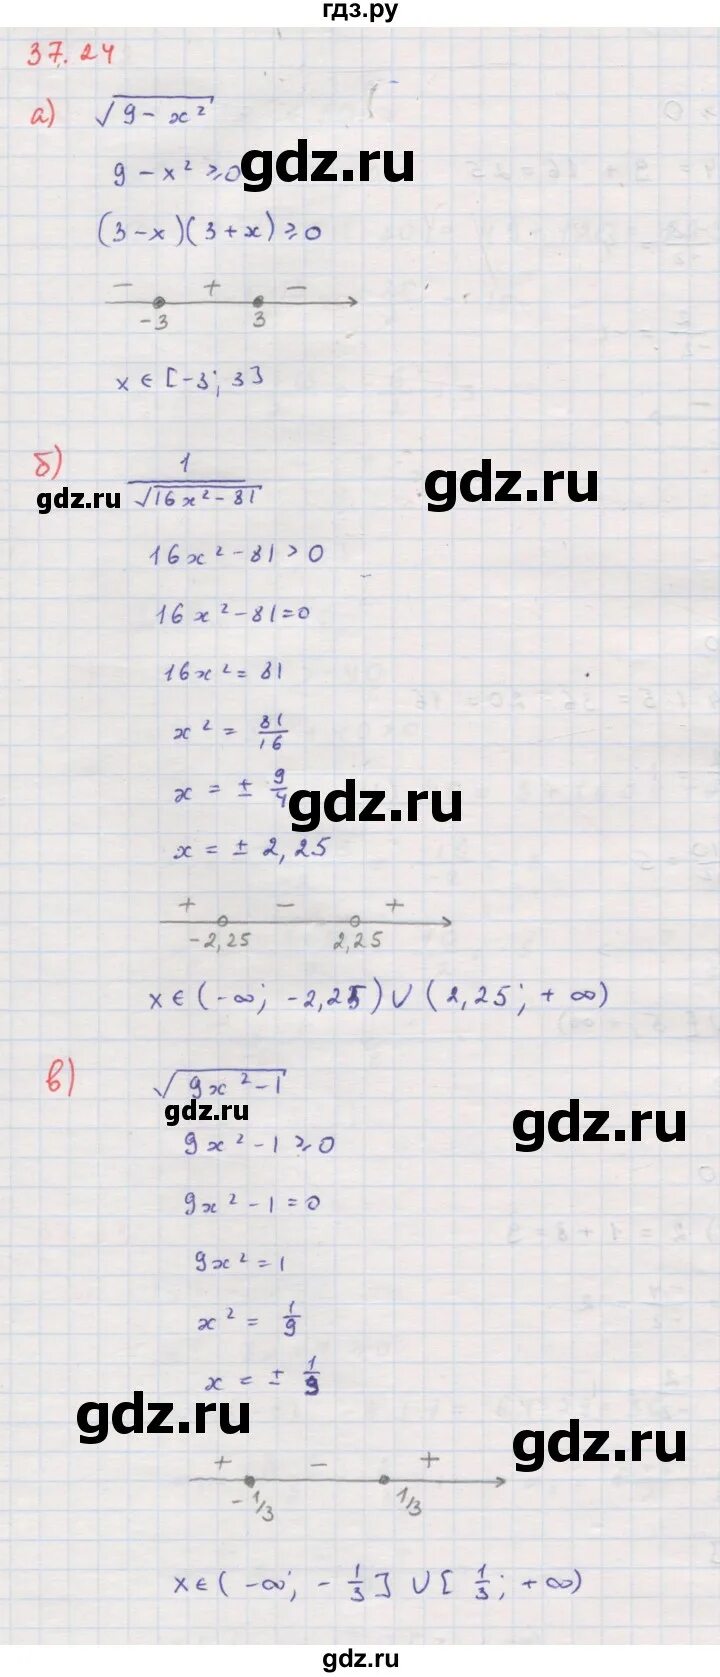 гдз.ру
37.24
а) √(9 - x²)
gdz.ru
9 - x² ≥ 0
(3-x)(3+x) ≥ 0
- + -
-3 3
x ∈ [-3; 3]
б) 1/√(16x² - 81)
gdz.ru gdz.ru
16x² - 81 > 0
16x² - 81 = 0
16x² = 81
x² = 81/16
x = ± 9/4
gdz.ru
x = ± 2,25
+ - +
-2,25 2,25
x ∈ (-∞; -2,25) ∪ (2,25; +∞)
в) √(9x² - 1)
gdz.ru gdz.ru
9x² - 1 ≥ 0
9x² - 1 = 0
9x² = 1
x² = 1/9
x = ± 1/9
gdz.ru gdz.ru
+ - +
-1/3 1/3
x ∈ (-∞; -1/3] ∪ [1/3; +∞)
gdz.ru